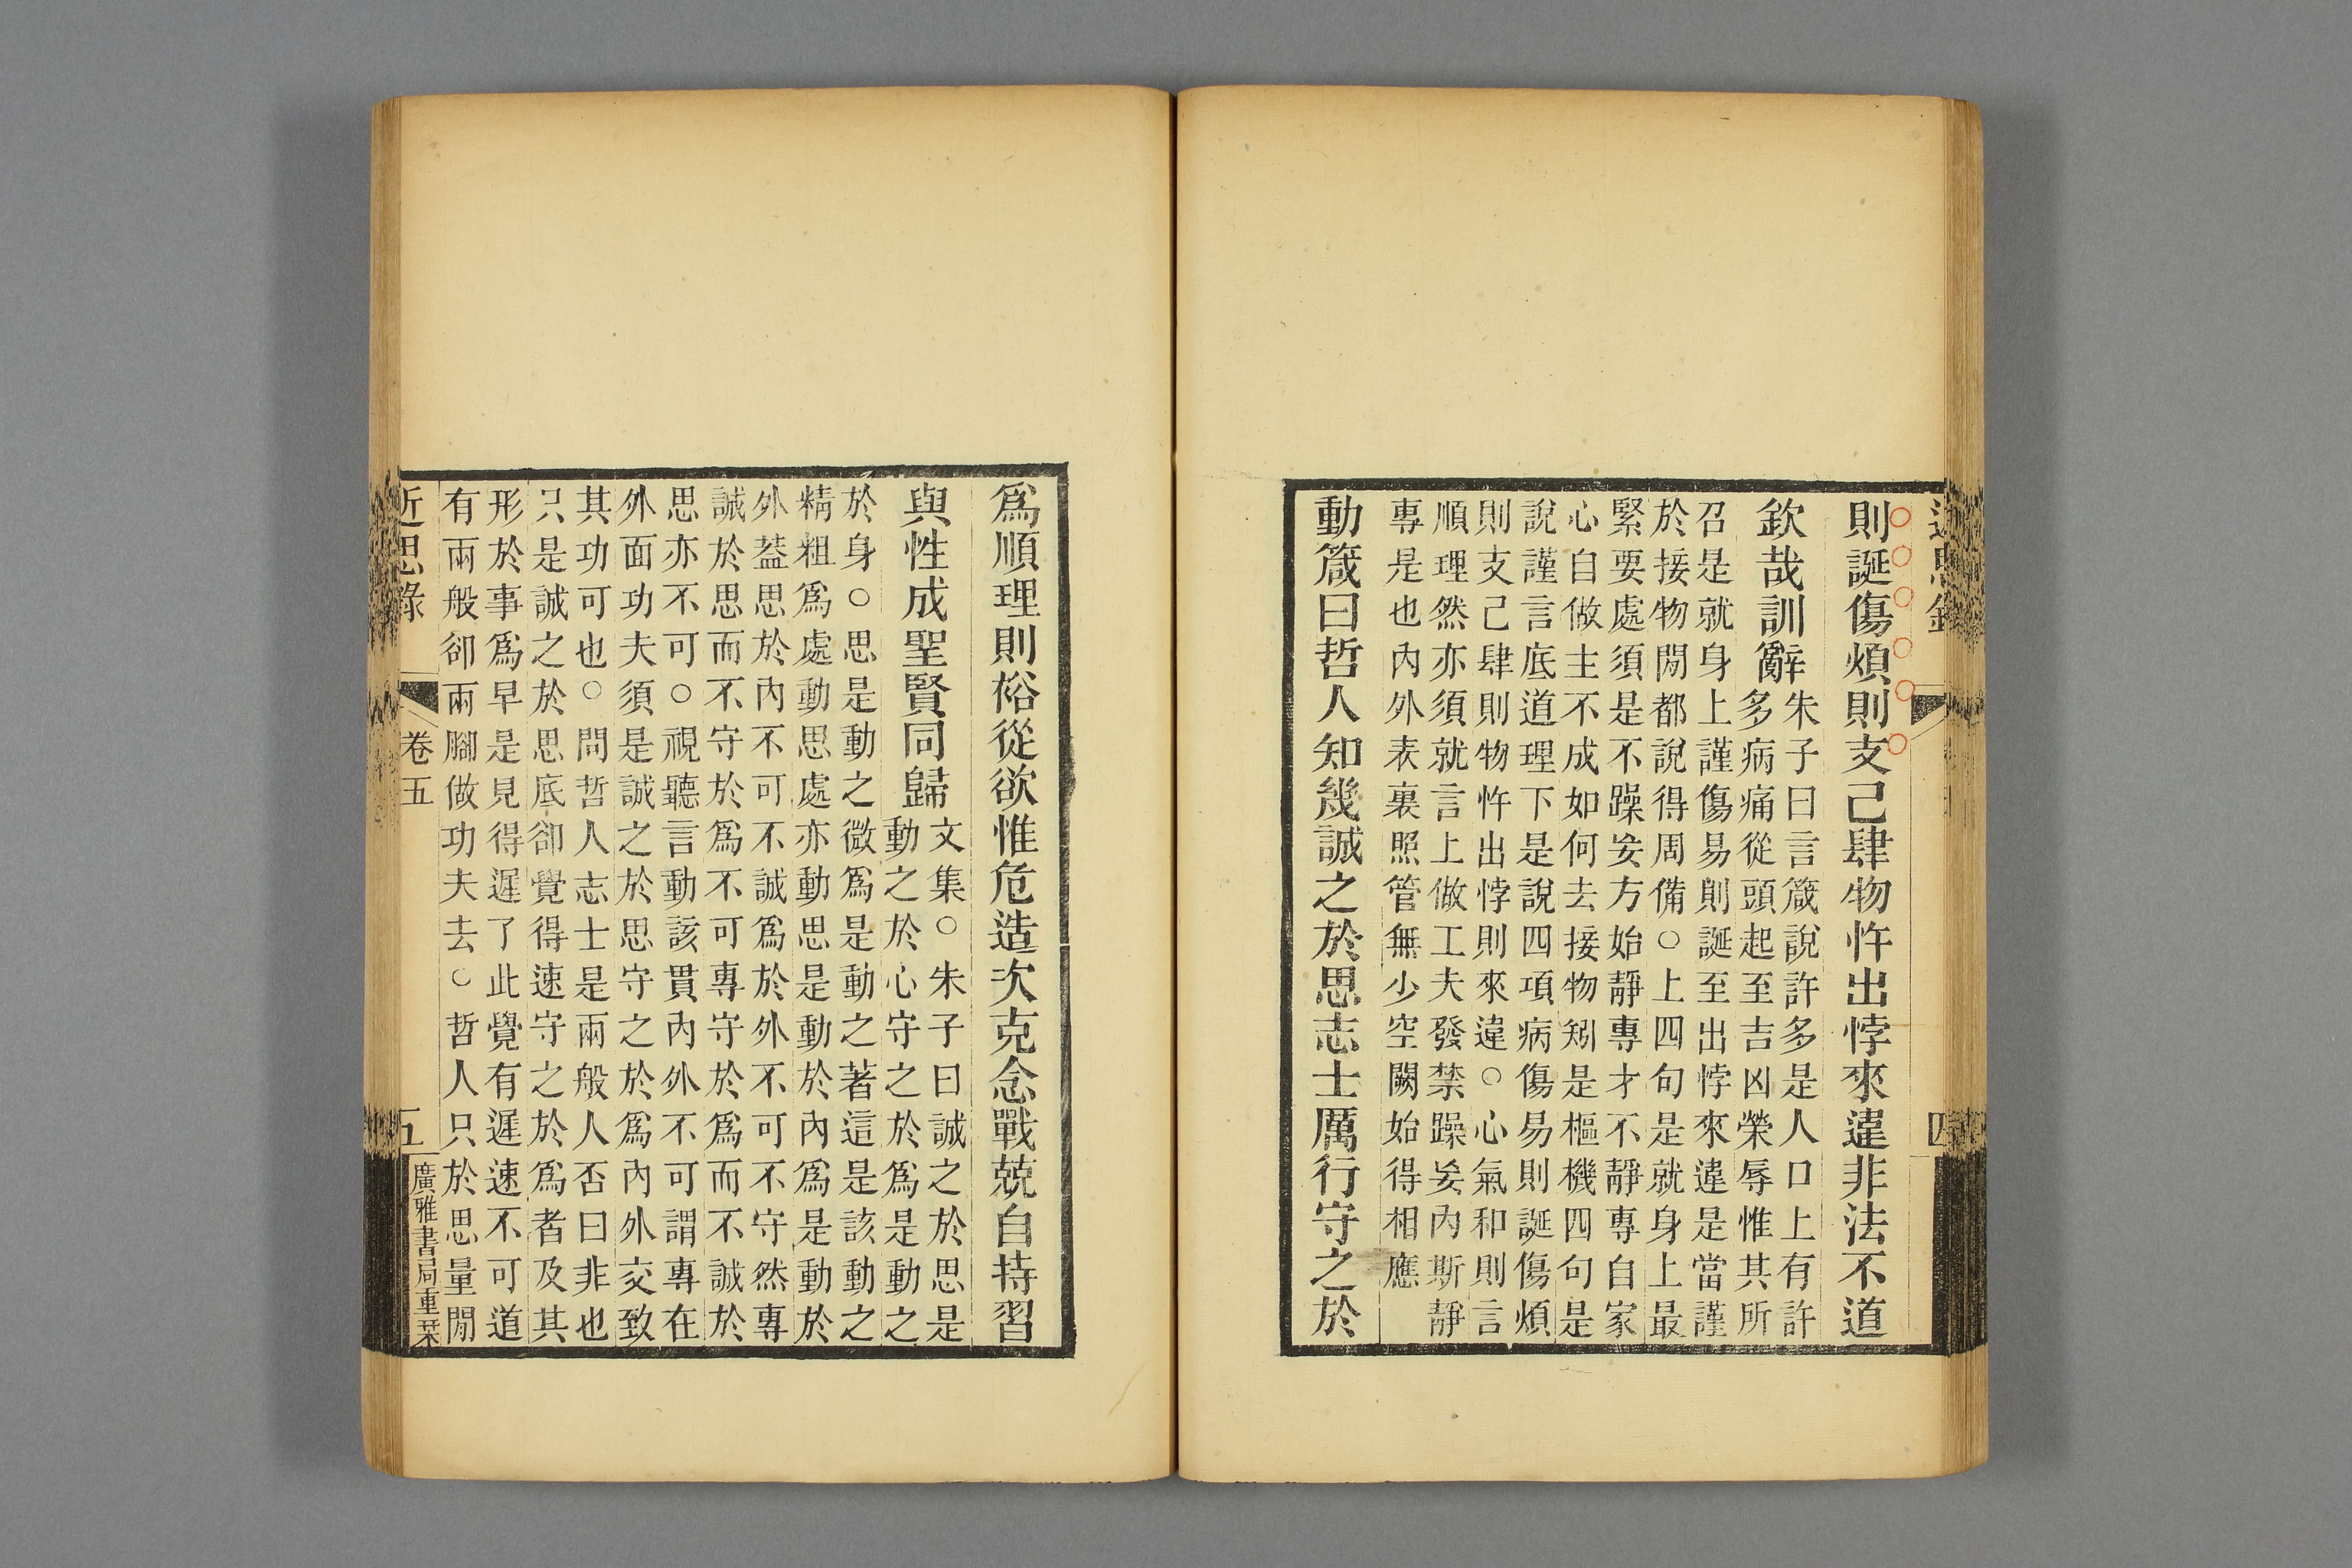 則誕傷煩則支己肆物忤出悖來違非法不道
欽哉訓辭
朱子曰言箴說許多是人口上有許
多病痛從頭起至吉凶榮辱惟其所
召是就身上謹傷易則誕至出悖來違是當謹
於接物閒都說得周備○上四句是就身上最
緊要處須是不躁妄方始靜專才不靜專自家
心自做主不成如何去接物矧是樞機四句是
說謹言底道理下是說四項病傷易則誕傷煩
則支己肆則物忤出悖則來違○心氣和則言
順理然亦須就言上做工夫發禁躁妄內斯靜
專是也內外表裏照管無少空闕始得相應
動箴曰哲人知幾誠之於思志士厲行守之於
爲順理則裕從欲惟危造次克念戰兢自持習
與性成聖賢同歸
文集○朱子曰誠之於思是
動之於心守之於爲是動之
於身○思是動之微爲是動之著這是該動之
精粗爲處動思處亦動思是動於內爲是動於
外葢思於內不可不誠爲於外不可不守然專
誠於思而不守於爲不可專守於爲而不誠於
思亦不可○視聽言動該貫內外不可謂專在
外面功夫須是誠之於思守之於爲內外交致
其功可也○問哲人志士是兩般人否曰非也
只是誠之於思底卻覺得速守之於爲者及其
形於事爲早是見得遲了此覺有遲速不可道
有兩般卻兩腳做功夫去○哲人只於思量閒
近思錄
卷五
五
廣雅書局重栞